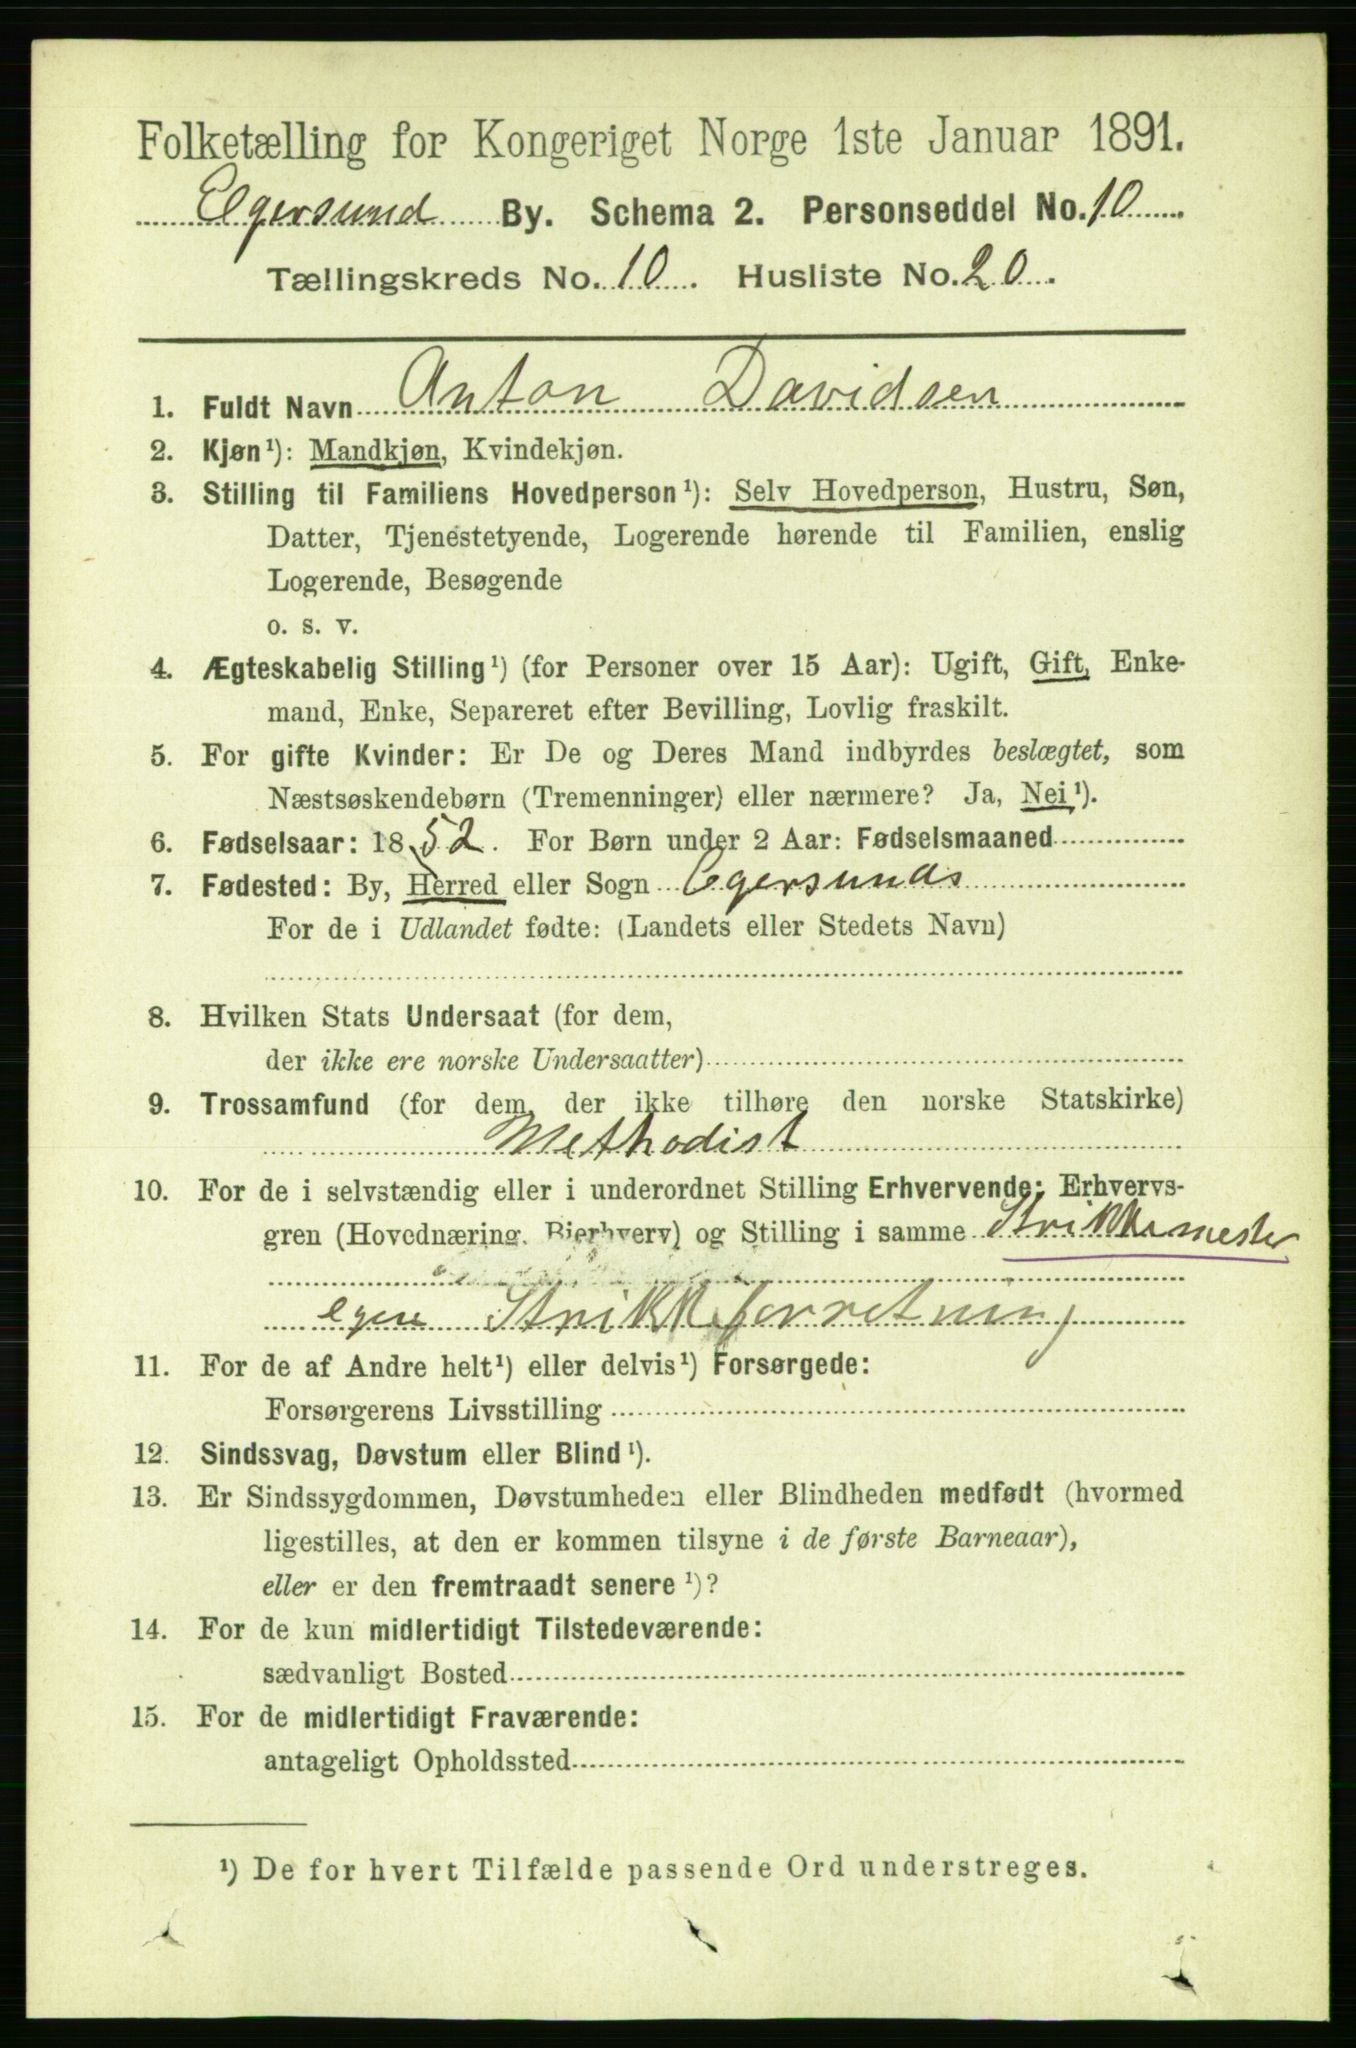 Folketælling for Kongeriget Norge 1ste Januar 1891.
Egersund By. Schema 2. Personseddel No. 10
Tællingskreds No. 10. Husliste No. 20.
1. Fuldt Navn Anton Davidsen
2. Kjøn¹): Mandkjøn, Kvindekjøn.
3. Stilling til Familiens Hovedperson¹): Selv Hovedperson, Hustru, Søn,
Datter, Tjenestetyende, Logerende hørende til Familien, enslig
Logerende, Besøgende
o. s. v.
4. Ægteskabelig Stilling¹) (for Personer over 15 Aar): Ugift, Gift, Enke-
mand, Enke, Separeret efter Bevilling, Lovlig fraskilt.
5. For gifte Kvinder: Er De og Deres Mand indbyrdes beslægtet, som
Næstsøskendebørn (Tremenninger) eller nærmere? Ja, Nei¹).
6. Fødselsaar: 1852. For Børn under 2 Aar: Fødselsmaaned
7. Fødested: By, Herred eller Sogn Egersunds
For de i Udlandet fødte: (Landets eller Stedets Navn)
8. Hvilken Stats Undersaat (for dem,
der ikke ere norske Undersaatter)
9. Trossamfund (for dem, der ikke tilhøre den norske Statskirke)
Methodist
10. For de i selvstændig eller i underordnet Stilling Erhvervende: Erhvervs-
gren (Hovednæring, Bierhverv) og Stilling i samme Strikkemester
egen Strikkeforretning
11. For de af Andre helt¹) eller delvis¹) Forsørgede:
Forsørgerens Livsstilling
12. Sindssvag, Døvstum eller Blind¹).
13. Er Sindssygdommen, Døvstumheden eller Blindheden medfødt (hvormed
ligestilles, at den er kommen tilsyne i de første Barneaar),
eller er den fremtraadt senere¹)?
14. For de kun midlertidigt Tilstedeværende:
sædvanligt Bosted
15. For de midlertidigt Fraværende:
antageligt Opholdssted
¹) De for hvert Tilfælde passende Ord understreges.